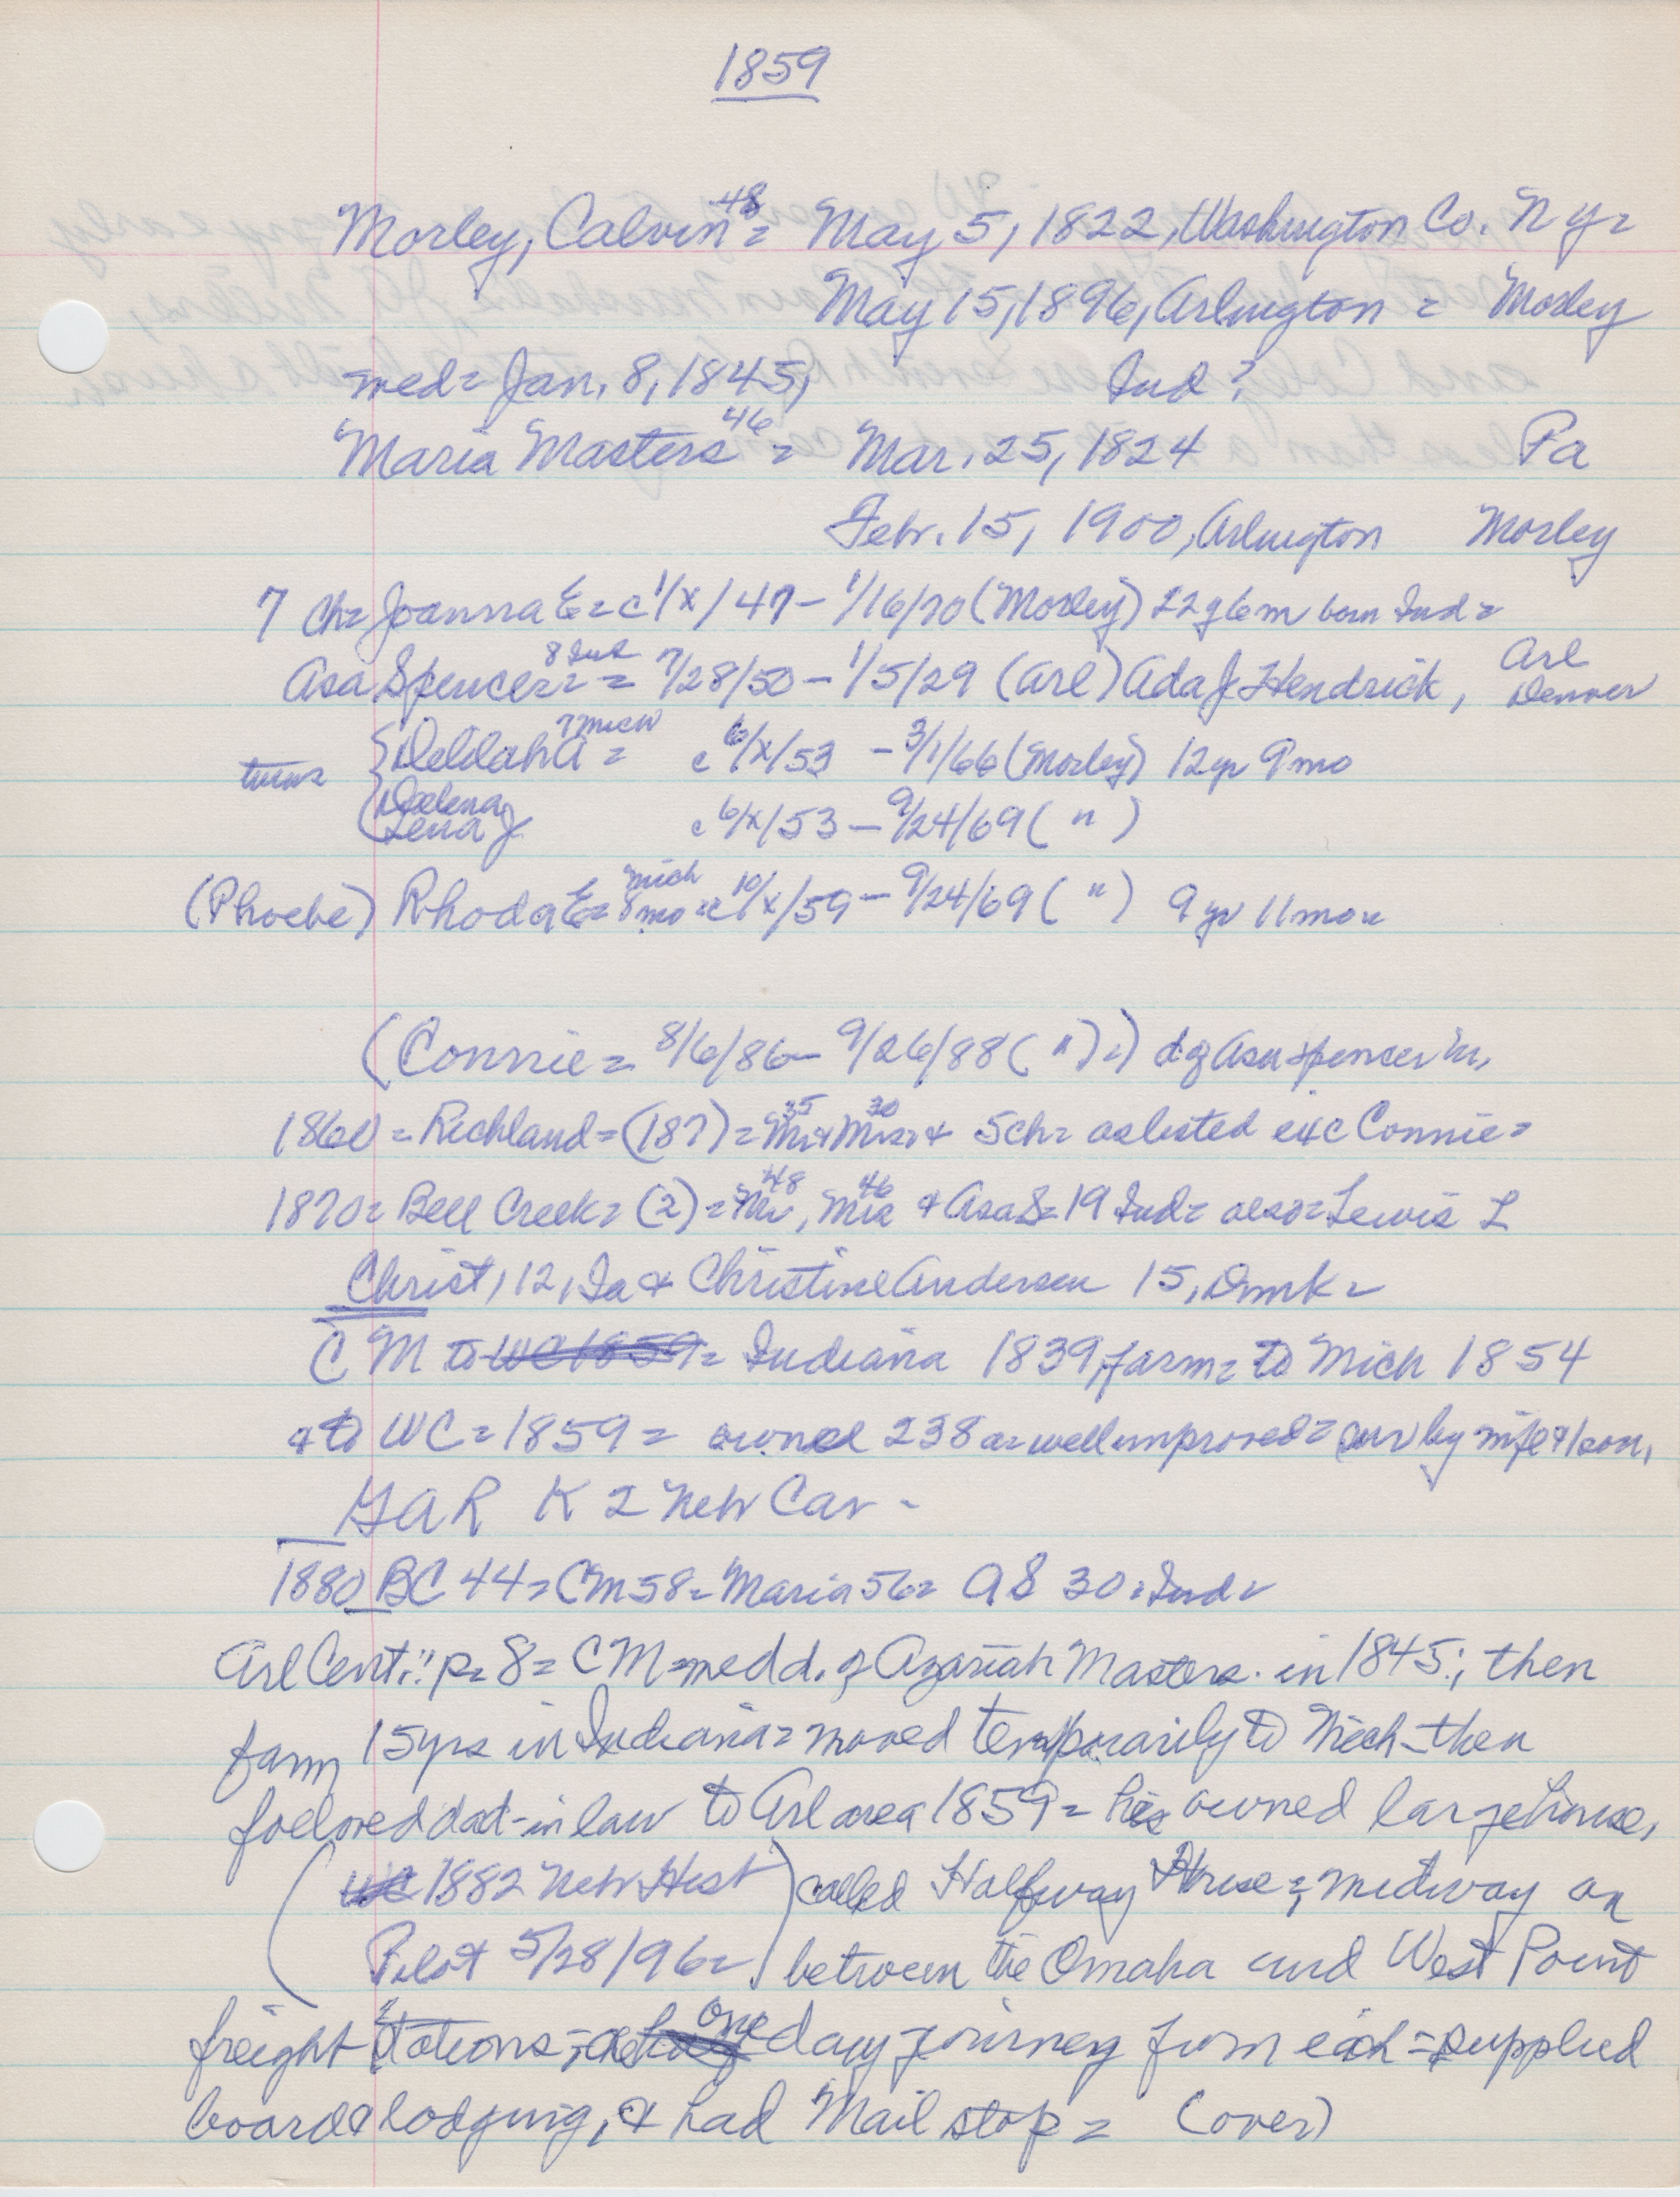 1859
Morley, Calvin 48 = May 5, 1822, Washington Co. N Y =
May 15, 1896, Arlington = Morley
med = Jan. 8, 1845, Ind ?
Maria Masters 46 = Mar. 25, 1824 Pa
Febr. 15, 1900, Arlington Morley
7 ch = Joanna E = c 1/x/47 - 1/16/70 (Morley) 22 y 6 m born Ind =
Asa Spencer = 8 Ind = 7/28/50 - 1/5/29 (Arl) Ada J Hendrick, Arl Denver
twins { Delilah A = 7 mich c 6/x/53 - 3/1/66 (Morley) 12 yr 9 mo
Dalena
Lena J c 6/x/53 - 9/24/69 ( " )
(Phoebe) Rhoda E = 8 mo mich = c 10/x/59 - 9/24/69 ( " ) 9 yr 11 mo =
(Connie = 8/6/86 - 9/26/88 ( " ) =) d of Asa Spencer M,
1860 = Richland = (187) = Mr 35 + Mrs 30 + 5 ch = as listed exc Connie =
1870 = Bell Creek = (2) = Mr 48, Mrs 46 + Asa S = 19 Ind = also = Lewis L
Christ, 12, Ia + Christine Andersen 15, Dmk =
C M to WC 1859 = Indiana 1839, farm = to Mich 1854
+ to WC = 1859 = owned 238 a = well improved = sur by wife + 1 son,
GAR K 2 Neb Cav -
1880 BC 44 = CM 58 = Maria 56 = A S 30 = Ind =
Arl Cent: " p = 8 = C M = med d. of Azariah Masters in 1845; then
farm 15 yrs in Indiana = moved temporarily to Mich - then
followed dad-in law to Arl area 1859 = his owned large house,
(WC 1882 Neb Hist) called Halfway House =, midway on
Pilot 5/28/96 =) between the Omaha and West Point
freight stations =, a one day journey from each = supplied
board & lodging, & had Mail stop = (over)